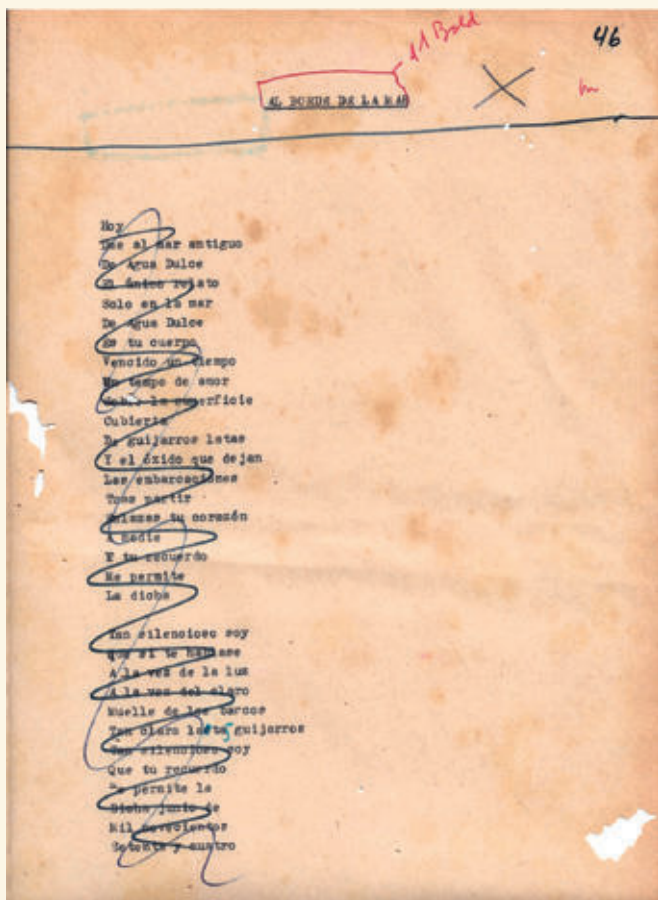 11 Bold
46
AL BORDE DE LA MAR
Hoy
al mar antiguo
De Agua Dulce
El único relato
Solo en la mar
De Agua Dulce
Es tu cuerpo
Vencido un tiempo
Un tempo de amor
Sobre la superficie
Cubierta
De guijarros latas
Y el óxido que dejan
Las embarcaciones
Tras partir
tu corazón
A nadie
Y tu recuerdo
Me permite
La dicha
Tan silencioso soy
Que si te hablase
A la vez de la luz
A la vez del claro
Muelle de los barcos
Tan claro guijarros
Tan silencioso soy
Que tu recuerdo
permite la
Dicha junio de
Mil novecientos
Setenta y cuatro